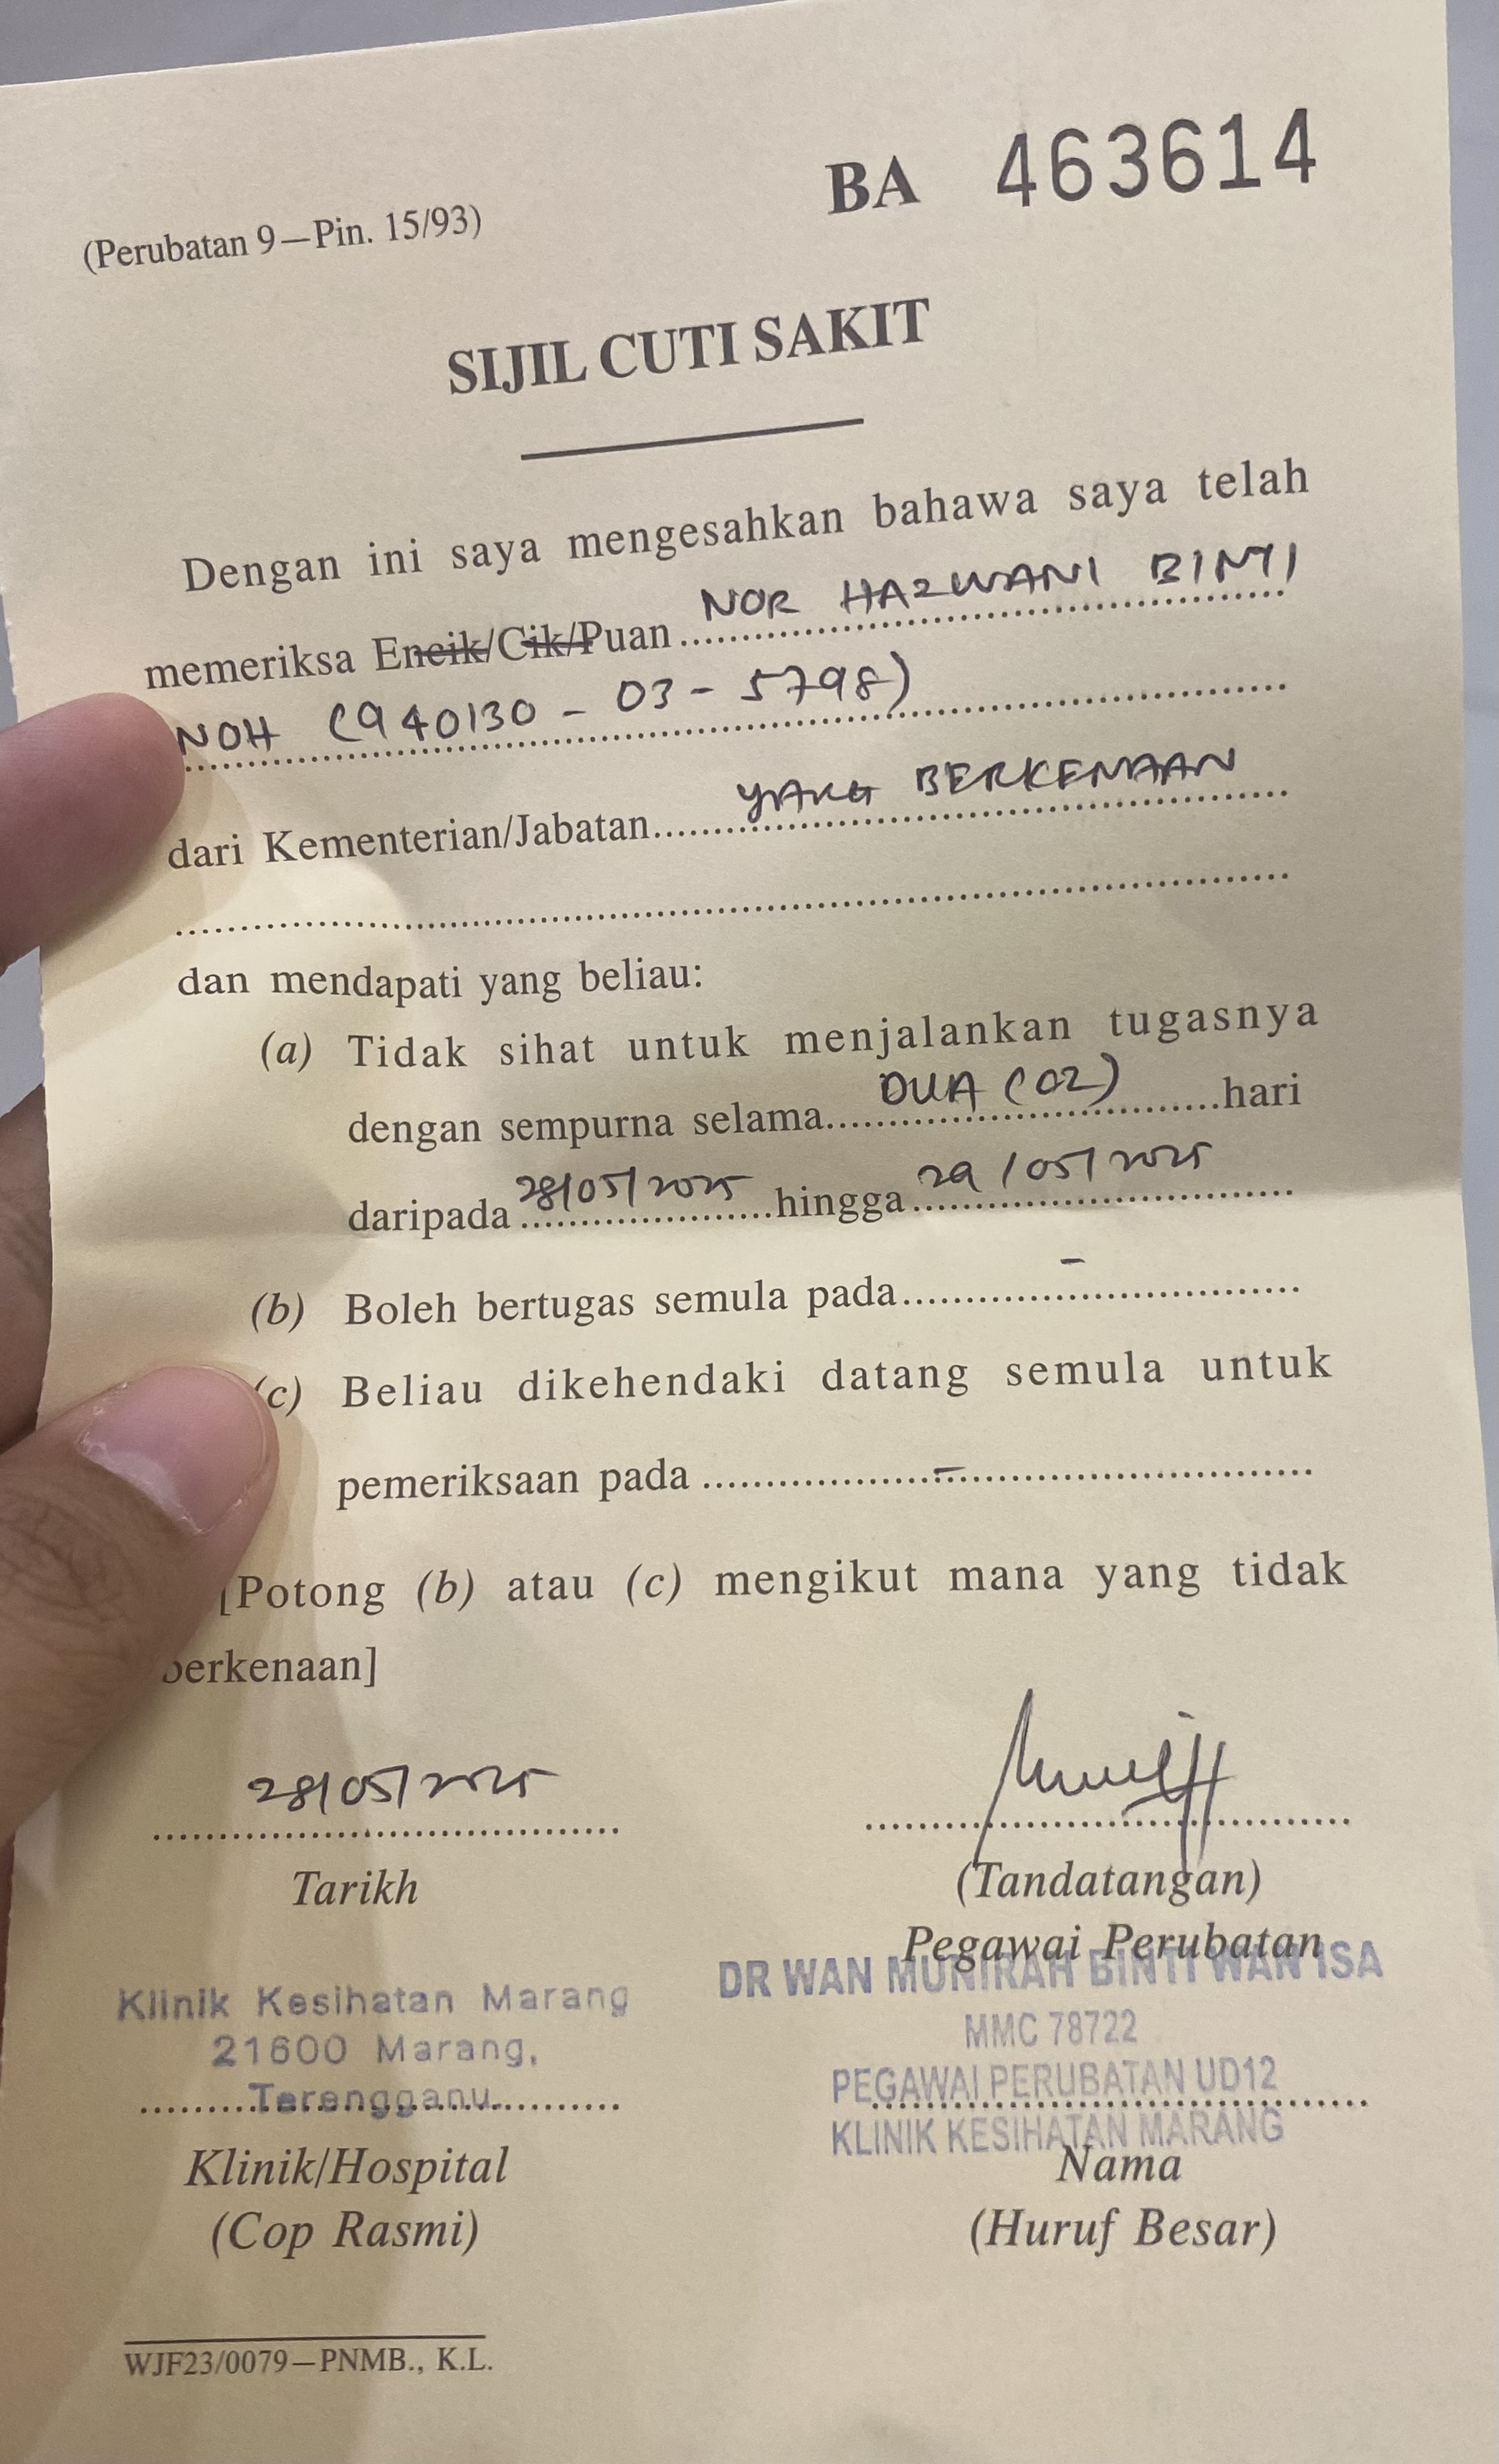 BA 463614
(Perubatan 9—Pin. 15/93)
SIJIL CUTI SAKIT
Dengan ini saya mengesahkan bahawa saya telah
memeriksa Encik/Cik/Puan NOR HAZWANI BINTI
NOH (940130 - 03 - 5798)
dari Kementerian/Jabatan YANG BERKENAAN
dan mendapati yang beliau:
(a) Tidak sihat untuk menjalankan tugasnya
dengan sempurna selama DUA (02) hari
daripada 28/05/2025 hingga 29/05/2025
(b) Boleh bertugas semula pada -
(c) Beliau dikehendaki datang semula untuk
pemeriksaan pada -
[Potong (b) atau (c) mengikut mana yang tidak
berkenaan]
28/05/2025
Tarikh
(Tandatangan)
Pegawai Perubatan
Klinik Kesihatan Marang
21600 Marang,
Terengganu
DR WAN MUNIRAH BINTI WAN ISA
MMC 78722
PEGAWAI PERUBATAN UD12
KLINIK KESIHATAN MARANG
Klinik/Hospital
(Cop Rasmi)
Nama
(Huruf Besar)
WJF23/0079—PNMB., K.L.